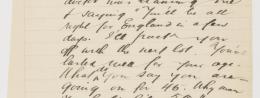 doctor was
of saying "You'll be all
right for England in a few
days. I'll
off with the next lot. You've
lasted well for your age.
What do you say you are –
going on for 46. Why man